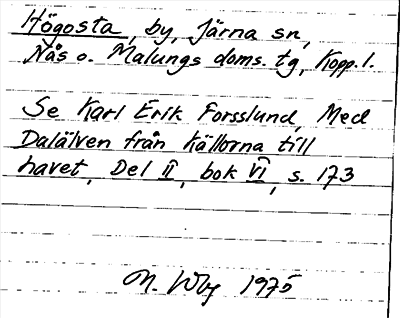 Högosta, by, Järna sn,
Nås o. Malungs doms. tg, Kopp. l.
Se Karl Erik Forsslund, Med
Dalälven från källorna till
havet, Del II, bok VI, s. 173
M. 1975